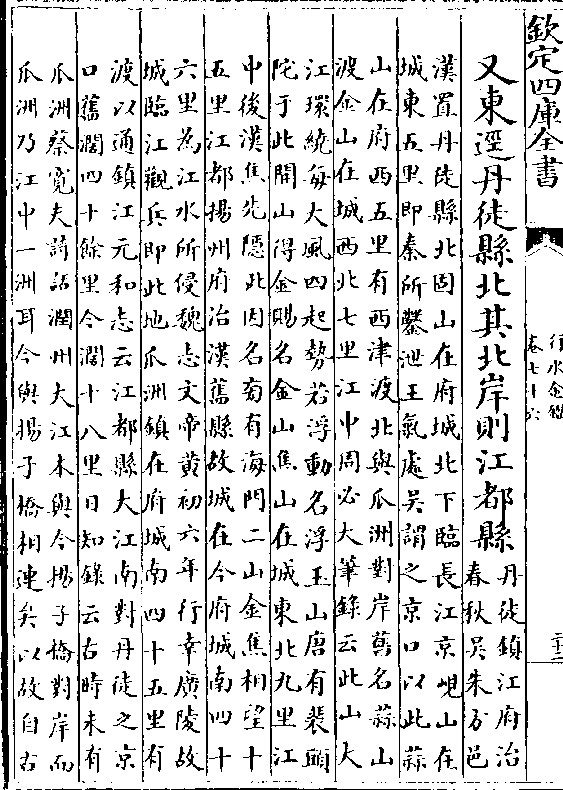 欽定四庫全書
行水金鑑
卷七十六
又東逕丹徒縣北其北岸則江都縣
丹徒鎮江府治
春秋吳朱方邑
漢置丹徒縣北固山在府城北下臨長江京峴山在
城東五里即秦所鑿泄王氣處吳謂之京口以此蒜
山在府西五里有西津渡北與瓜洲對岸舊名蒜山
渡金山在城西北七里江中周必大筆錄云此山大
江環繞每大風四起勢若浮動名浮玉山唐有裴頭
陀于此開山得金賜名金山焦山在城東北九里江
中後漢焦先隱此因名旁有海門二山金焦相望十
五里江都揚州府治漢舊縣故城在今府城南四十
六里為江水所侵魏志文帝黃初六年行幸廣陵故
城臨江觀兵即此地瓜洲鎮在府城南四十五里有
渡以通鎮江元和志云江都縣大江南對丹徒之京
口舊濶四十餘里今濶十八里日知錄云古時未有
瓜洲蔡寬夫詩話潤州大江本與今揚子橋對岸而
瓜洲乃江中一洲耳今與揚子橋相連矣以故自古